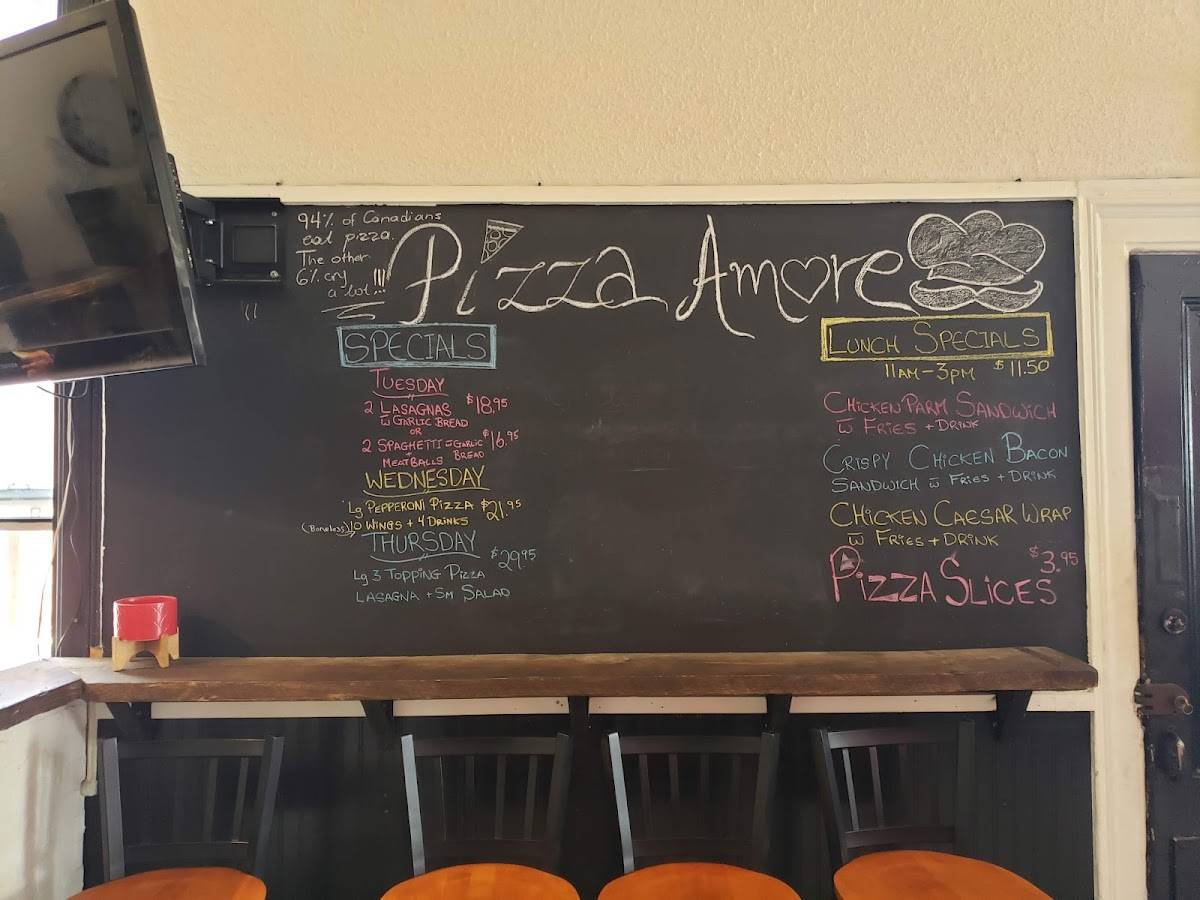 94% of Canadians
eat pizza.
The other
6% cry
a lot!!!
Pizza Amore
SPECIALS
TUESDAY
2 LASAGNAS $18.95
w̄ GARLIC BREAD
OR
2 SPAGHETTI w̄ GARLIC $16.95
+ MEATBALLS BREAD
WEDNESDAY
Lg PEPPERONI PIZZA $21.95
(Boneless) 10 WINGS + 4 DRINKS
THURSDAY $29.95
Lg 3 TOPPING PIZZA
LASAGNA + SM SALAD
LUNCH SPECIALS
11AM - 3PM $11.50
CHICKEN PARM SANDWICH
w̄ FRIES + DRINK
CRISPY CHICKEN BACON
SANDWICH w̄ FRIES + DRINK
CHICKEN CAESAR WRAP
w̄ FRIES + DRINK
PIZZA SLICES $3.95